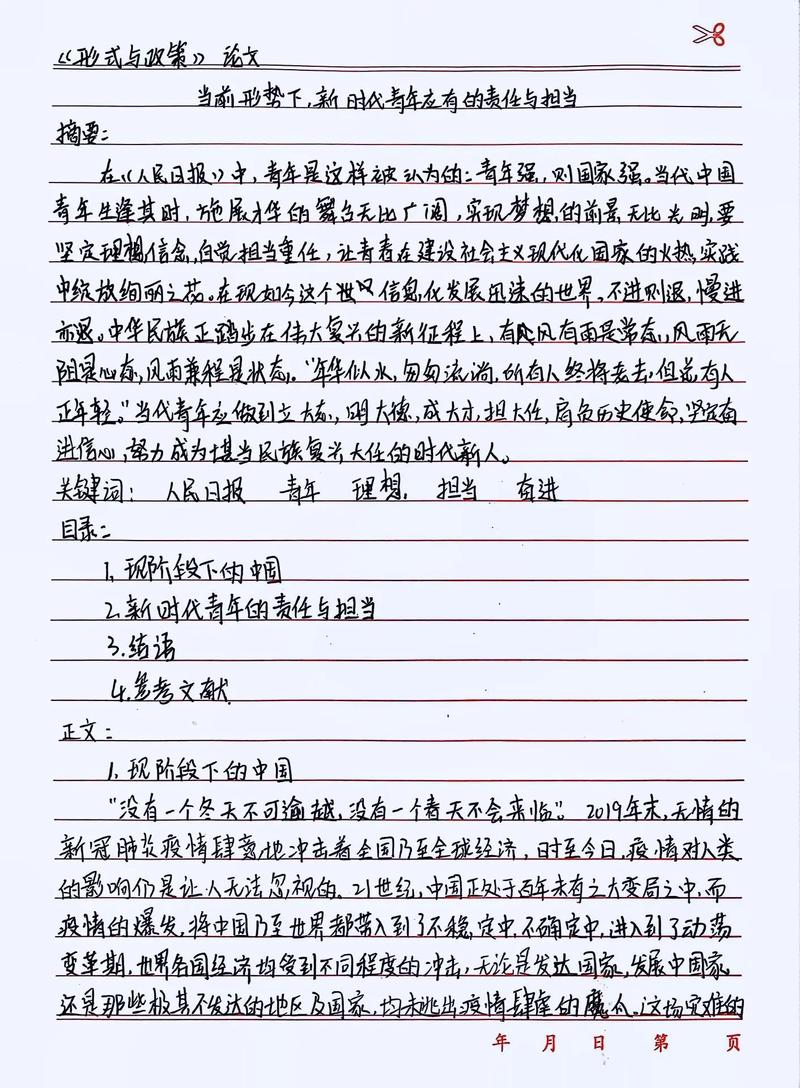 《形式与政策》论文
当前形势下,新时代青年应有的责任与担当
摘要:
在《人民日报》中,青年是这样被认为的:青年强,则国家强。当代中国
青年生逢其时,施展才华的舞台无比广阔,实现梦想的前景无比光明,要
坚定理想信念,自觉担当重任,让青春在建设社会主义现代化国家的火热实践
中绽放绚丽之花。在现如今这个世 信息化发展迅速的世界,不进则退,慢进
亦退。中华民族正踏步在伟大复兴的新征程上,有风有雨是常态,风雨无
阻是心态,风雨兼程是状态。“年华似水,匆匆流淌,所有人终将老去,但总有人
正年轻。”当代青年应做到立大志,明大德,成大才,担大任,肩负历史使命,坚定奋
进信心,努力成为堪当民族复兴大任的时代新人。
关键词: 人民日报 青年 理想 担当 奋进
目录:
1.现阶段下的中国
2.新时代青年的责任与担当
3.结语
4.参考文献
正文:
1.现阶段下的中国
“没有一个冬天不可逾越,没有一个春天不会来临”。2019年末,无情的
新冠肺炎疫情肆意地冲击着全国乃至全球经济,时至今日,疫情对人类
的影响仍是让人无法忽视的。21世纪,中国正处于百年未有之大变局之中,而
疫情的爆发,将中国乃至世界都带入到了不稳定中,不确定中,进入到了动荡
变革期,世界各国经济均受到不同程度的冲击,无论是发达国家,发展中国家
还是那些极其不发达的地区及国家,均未逃出疫情肆虐的魔爪。这场灾难的
年 月 日 第 页